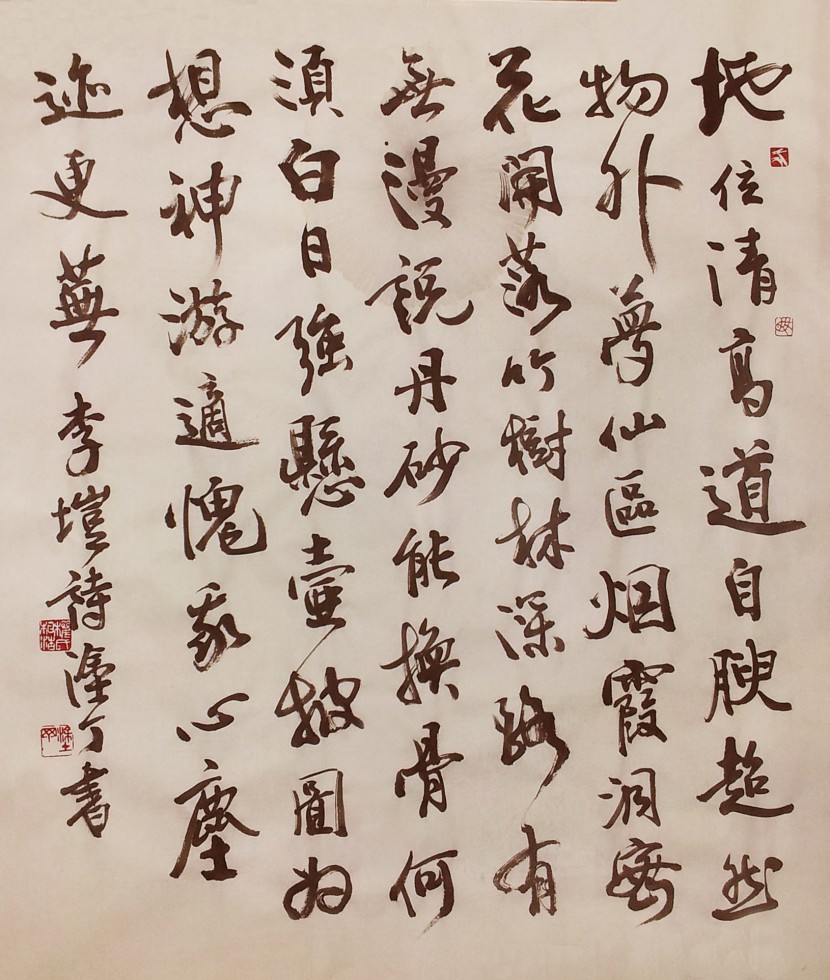 地位清高道自腴超然
物外夢仙區烟霞洞密
花開落竹樹林深路有
無漫説丹砂能換骨何
須白日強懸壺披圖为
想神游適愧我心塵
迹更蕪李塏詩滌丁書